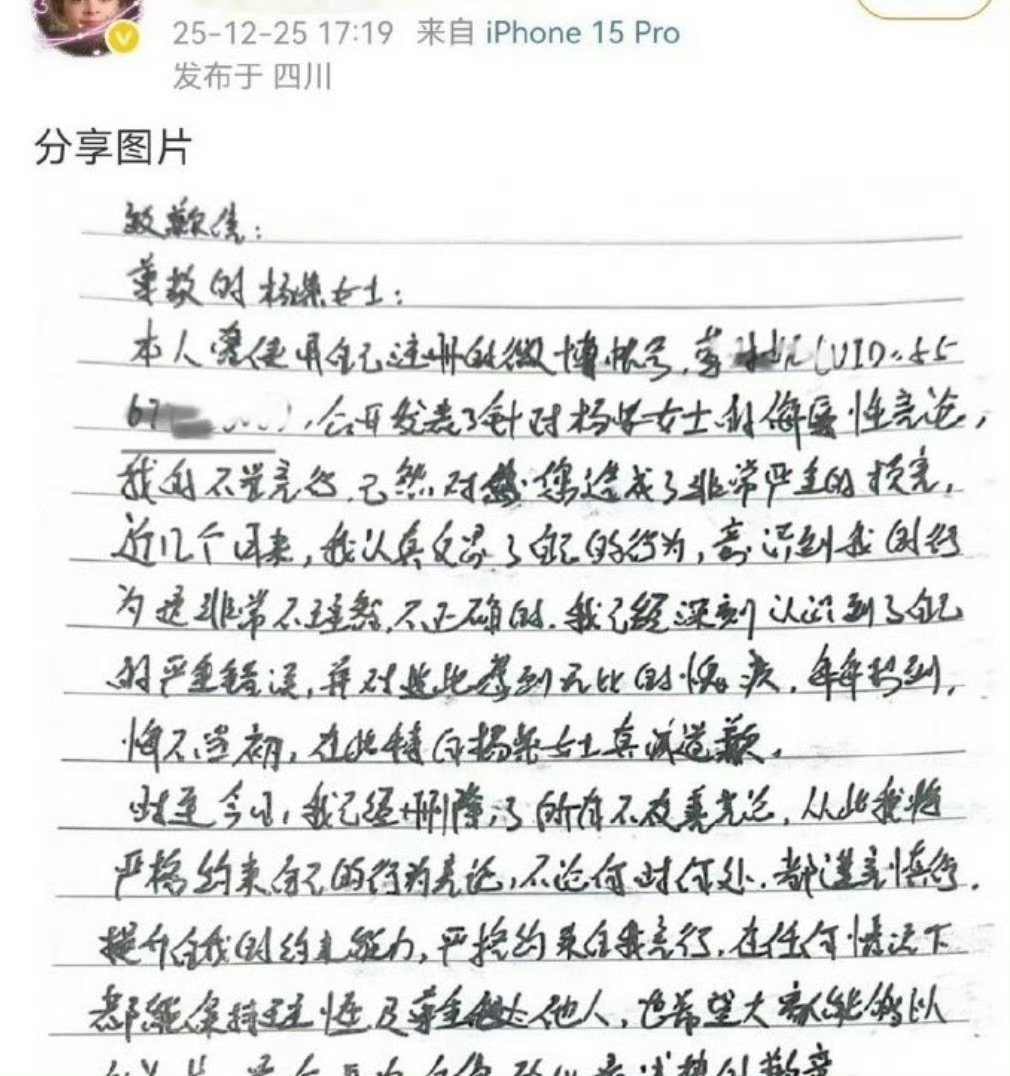 25-12-25 17:19 来自 iPhone 15 Pro
发布于 四川
分享图片
致歉信：
尊敬的杨 女士：
本人曾使用自己注册的微博帐号，(UID:55
67 )，公开发表了针对杨 女士的侮辱性言论，
我的不当言行，已然对您造成了非常严重的损害，
近几个月来，我认真反思了自己的行为，意识到我的行
为是非常不理智，不正确的，我已经深刻认识到了自己
的严重错误，并对此感到无比的愧疚，每每想到，
悔不当初，在此特向杨 女士真诚道歉。
时至今日，我已经删除了所有不友善言论，从此我将
严格约束自己的行为言论，不论何时何处，都谨言慎行，
提升自我的约束能力，严格约束自我言行，在任何情况下
都能保持理性及尊重他人，也希望大家能够以